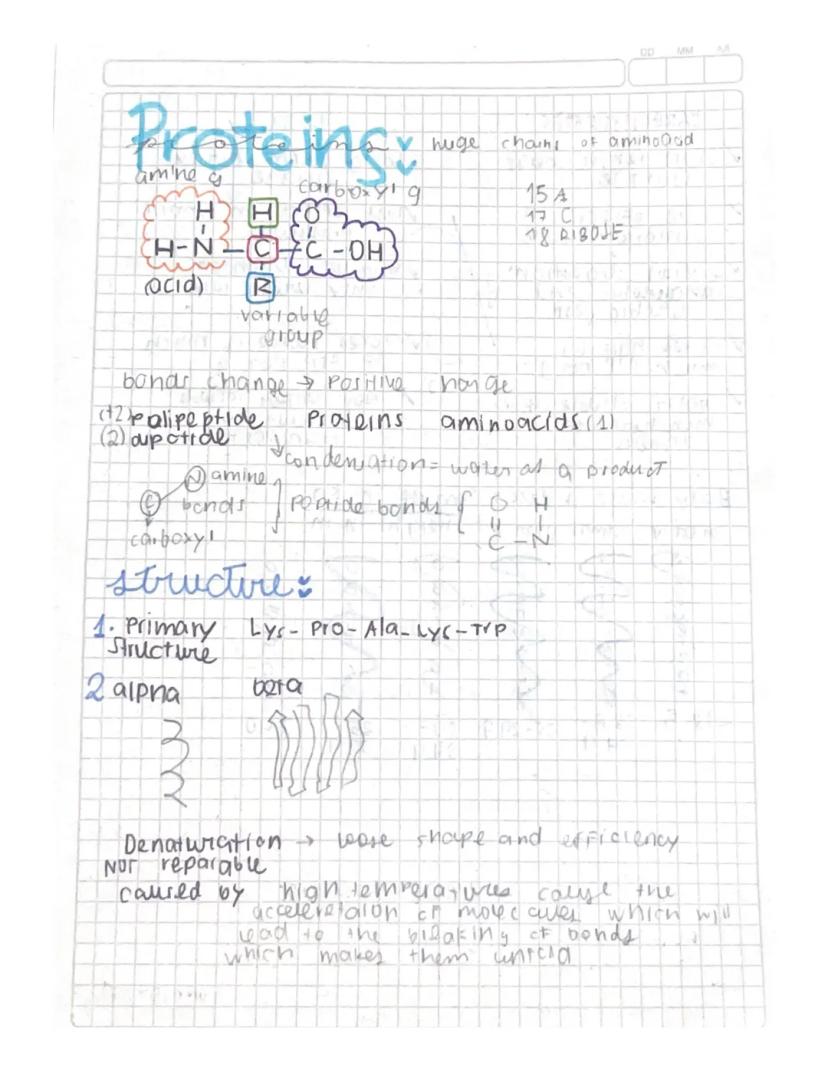 DD MM AA
Proteins: huge chains of aminoacid
proteins
amine g carboxyl g
15 A
17 C
18 RIBOSE
H H O
H-N-C-C-OH
(acid) R
variable
group
bonds change → positive charge
(+2) polipeptide Proteins aminoacids (1)
(2) dipetide
↓ condensation = water as a product
N amine
C bonds peptide bonds { O H
carboxyl C-N
structure:
1. Primary Lys-Pro-Ala-Lyc-Trp
structure
2 alpha beta
Denaturation → loose shape and efficiency
NOT reparable
caused by high temperatures cause the
acceleretaion of molecules which will
lead to the breaking of bonds
which makes them unfold